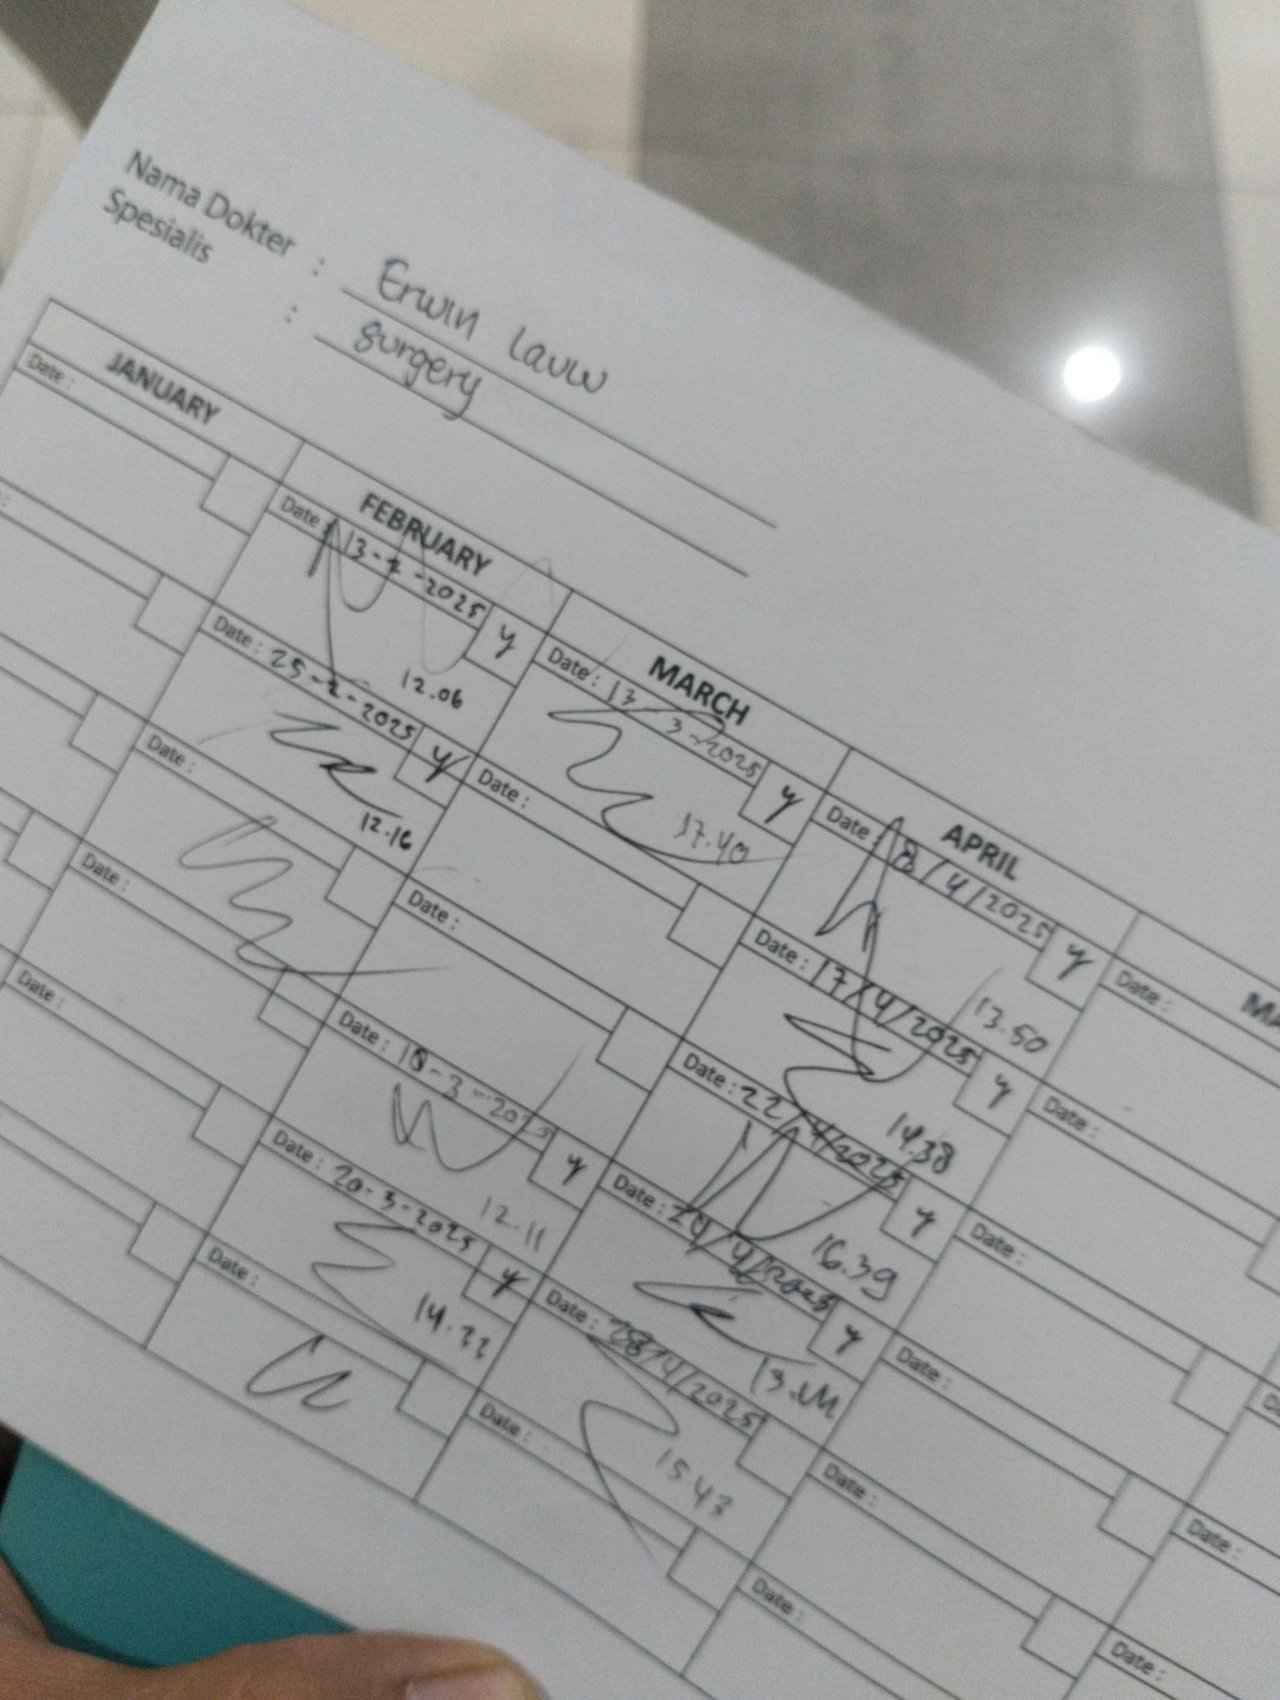 Nama Dokter : Erwin Lauw
Spesialis : Surgery
JANUARY
Date :
FEBRUARY
Date : 13-2-2025 y
12.06
Date : 25-2-2025 y
12.16
Date :
Date :
Date :
MARCH
Date : 13-3-2025 y
17.40
Date :
Date :
Date : 18-3-2025 y
12.11
Date : 20-3-2025 y
14.22
Date :
APRIL
Date : 8/4/2025 y
13.50
Date : 17/4/2025 y
14.38
Date : 22/4/2025 y
16.39
Date : 24/4/2025 y
Date : 28/4/2025
15.43
Date :
Date :
Date :
Date :
Date :
Date :
Date :
Date :
Date :
Date :